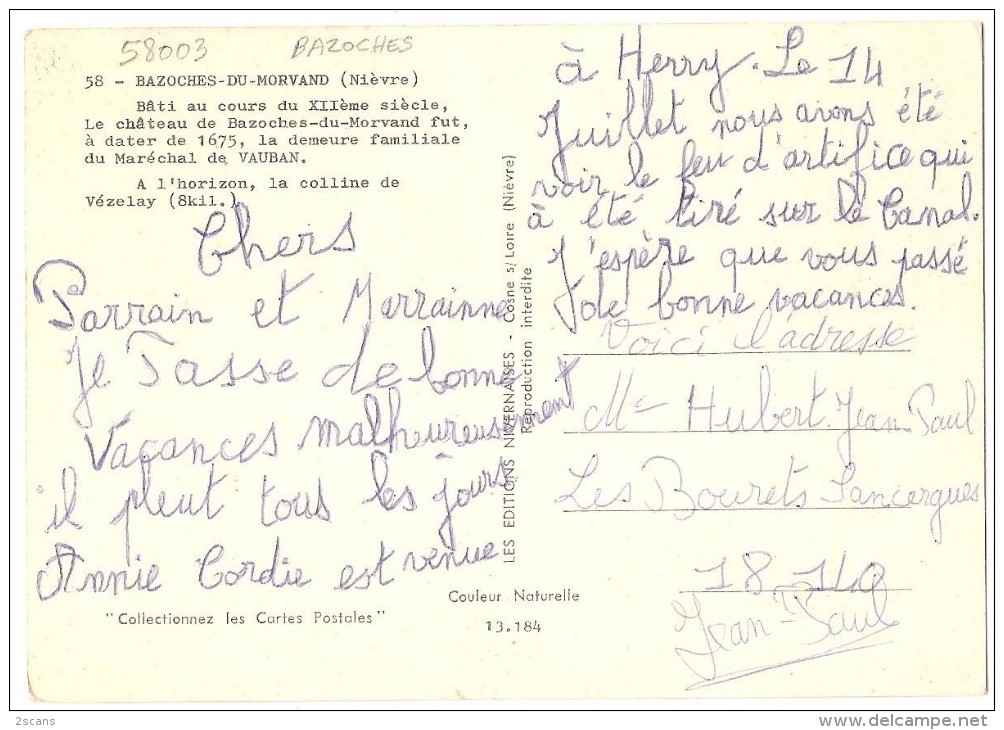 58003 BAZOCHES
58 - BAZOCHES-DU-MORVAND (Nièvre)
Bâti au cours du XIIème siècle,
Le château de Bazoches-du-Morvand fut,
à dater de 1675, la demeure familiale
du Maréchal de VAUBAN.
A l'horizon, la colline de
Vézelay (8kil.)
Chers
Parrain et Marrainne
Je Passe de bonnes
Vacances malheureusement
il pleut tous les jours
Annie Cordie est venue
à Herry. Le 14
Juillet nous avons été
voir le feu d'artifice qui
à été tiré sur le Canal.
J'espère que vous passé
de bonne vacances.
Voici l'adresse
Mr Hubert Jean-Paul
Les Bourets Sancergues
18 140
Jean-Paul
LES EDITIONS NIVERNAISES - Cosne s/Loire (Nièvre)
Reproduction interdite
"Collectionnez les Cartes Postales"
Couleur Naturelle
13.184
2scans
www.delcampe.net